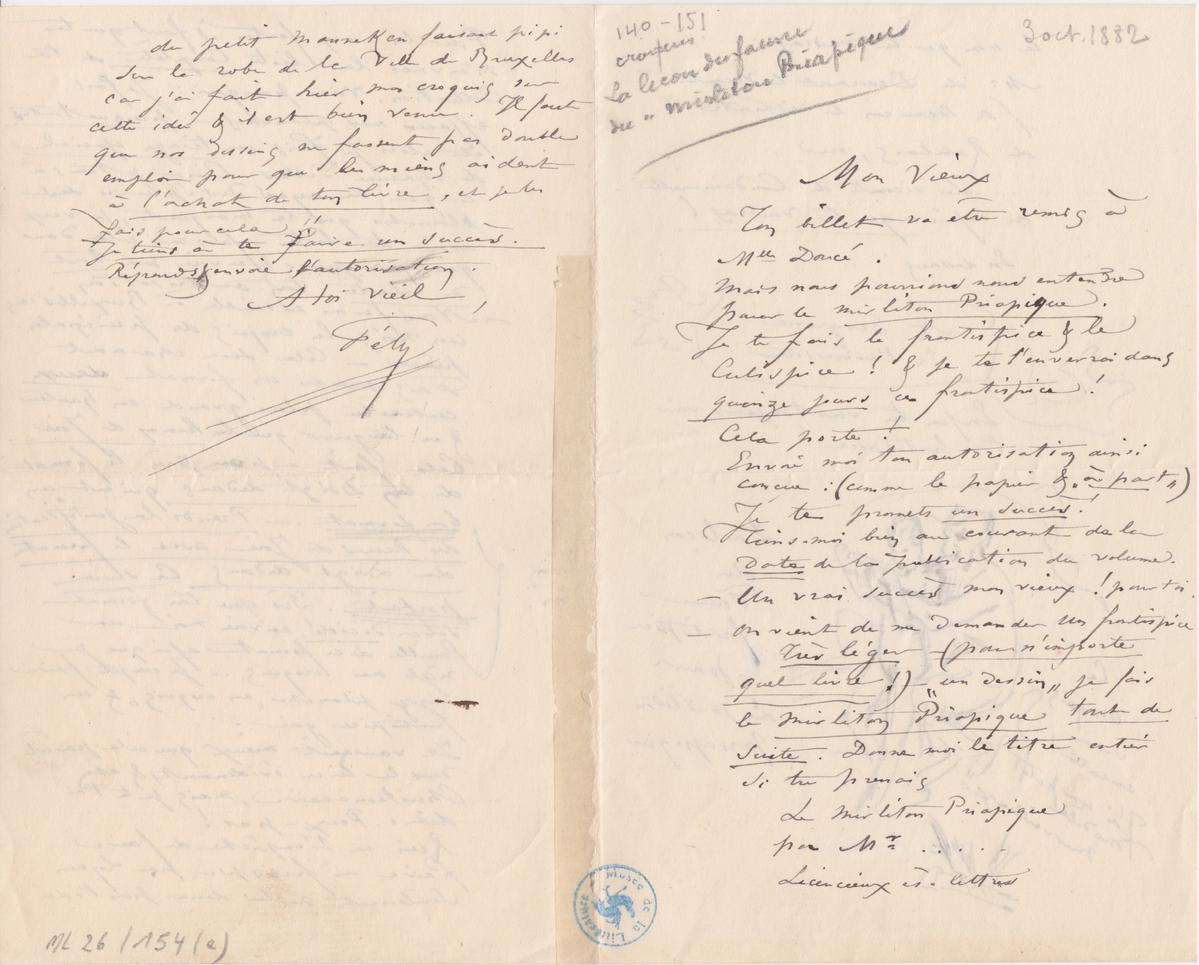 140-151
croquis:
La leçon du faune
du "mirliton Priapique
3 oct. 1882
Mon Vieux
Ton billet va être remis à
Mlle Doucé.
Mais nous pourrions nous entendre
pour le mirliton Priapique.
Je te fais le frontispice & le
Culispice ! & je te l'enverrai dans
quinze jours ce frontispice !
Cela porte !
Envoie moi ton autorisation ainsi
concue : (comme le papier & "à part")
Je te promets un succès !
Tiens-moi bien au courant de la
Date de la publication du volume.
— Un vrai succès mon vieux ! pour toi.
— On vient de me demander un frontispice
très léger (pour n'importe
quel livre !) "un dessin" je fais
le mirliton Priapique tout de
suite. Donne moi le titre entier
Si tu prenais
Le Mirliton Priapique
par Mr .....
Licencieux ès-lettres
du petit manneken faisant pipi
sur la robe de la Ville de Bruxelles
car j'ai fait hier mon croquis sur
cette idée & il est bien venu. Il faut
que nos dessins ne fassent pas double
emploi pour que les miens aident
à l'achat de ton livre, et je les
fais pour cela !!
Je tiens à te faire un succès.
Réponds & envoie l'autorisation.
A toi vieil
Fély
Musée de la Littérature
ML 26/154(e)